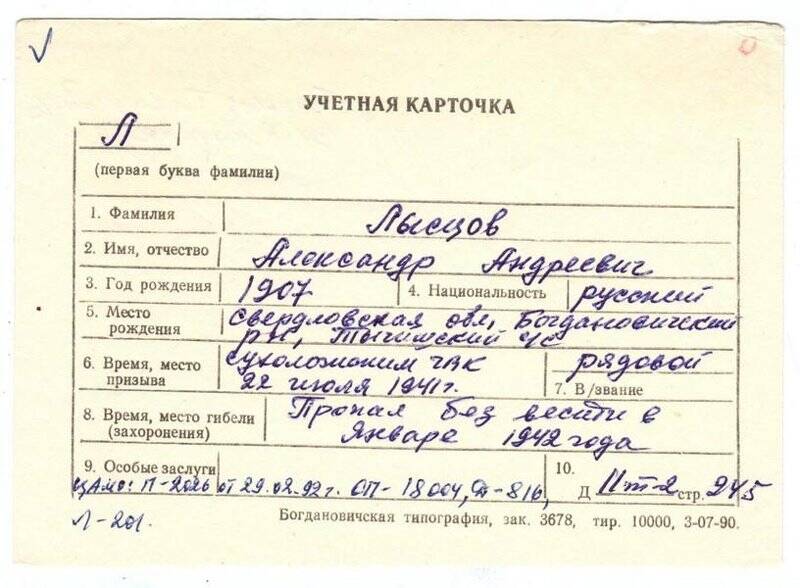 УЧЕТНАЯ КАРТОЧКА
Л
(первая буква фамилии)
1. Фамилия Лысцов
2. Имя, отчество Александр Андреевич
3. Год рождения 1907 4. Национальность русский
5. Место рождения Свердловская обл, Богдановичский
р-н, Тыгишский с/с
6. Время, место призыва Сухоложским РВК
22 июля 1941г.
рядовой
7. В/звание
8. Время, место гибели (захоронения) Пропал без вести в
Январе 1942 года
9. Особые заслуги
ЦАМО: П-2026 от 29.02.92г. ОП-18004, Д-816,
Л-201.
10.
Д IIт-2 стр. 245
Богдановичская типография, зак. 3678, тир. 10000, 3-07-90.